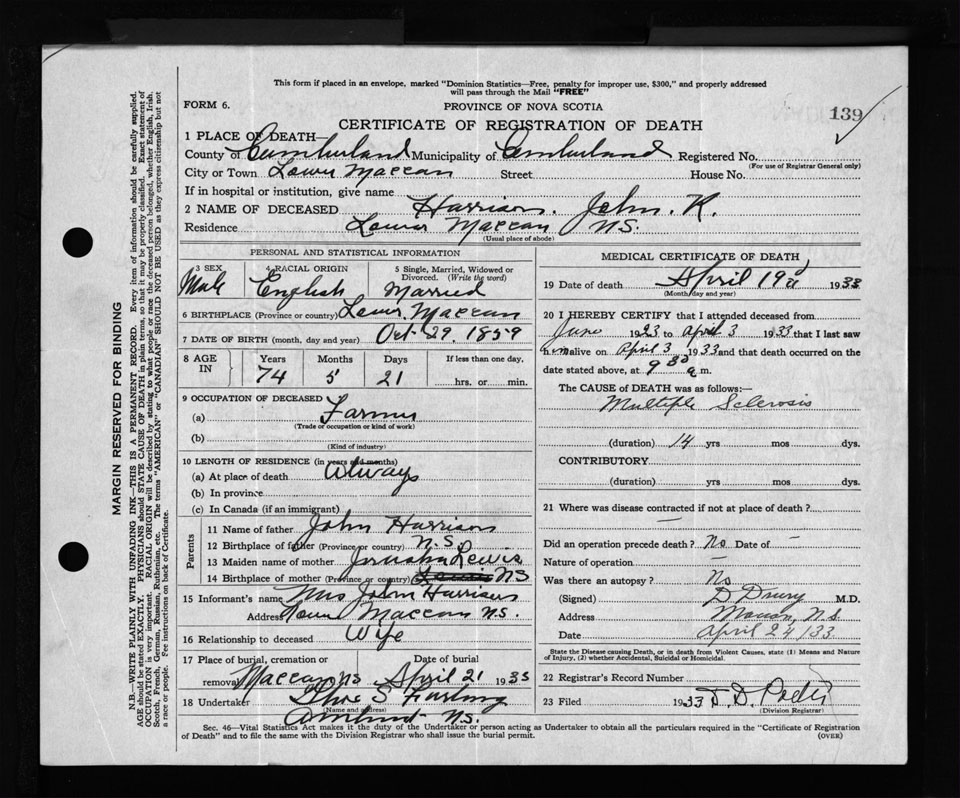 This form if placed in an envelope, marked "Dominion Statistics—Free, penalty for improper use, $300," and properly addressed
will pass through the Mail "FREE"
FORM 6.
PROVINCE OF NOVA SCOTIA
139
CERTIFICATE OF REGISTRATION OF DEATH
1 PLACE OF DEATH—
County of Cumberland Municipality of Cumberland Registered No.
(For use of Registrar General only)
City or Town Lower Maccan Street House No.
If in hospital or institution, give name
2 NAME OF DECEASED Harrison. John. K.
Residence Lower Maccan N.S.
(Usual place of abode)
PERSONAL AND STATISTICAL INFORMATION
3 SEX 4 RACIAL ORIGIN 5 Single, Married, Widowed or Divorced. (Write the word)
Male English Married
6 BIRTHPLACE (Province or country) Lower Maccan
7 DATE OF BIRTH (month, day and year) Oct. 29. 1859
8 AGE IN Years Months Days If less than one day.
74 5 21 hrs. or min.
9 OCCUPATION OF DECEASED
(a) Farmer
(Trade or occupation or kind of work)
(b)
(Kind of industry)
10 LENGTH OF RESIDENCE (in years and months)
(a) At place of death Always
(b) In province
(c) In Canada (if an immigrant)
Parents
11 Name of father John Harrison
12 Birthplace of father (Province or country) N.S.
13 Maiden name of mother Lewis
14 Birthplace of mother (Province or country) Lewis NS
15 Informant's name Mrs John Harrison
Address Lower Maccan N.S.
16 Relationship to deceased Wife
17 Place of burial, cremation or Date of burial
removal Maccan NS April 21 1933
18 Undertaker S.
(Name and address)
Amherst N.S.
MEDICAL CERTIFICATE OF DEATH
19 Date of death April 19 1933
(Month, day and year)
20 I HEREBY CERTIFY that I attended deceased from
June 1923 to April 3 1933 that I last saw
him alive on April 3 1933 and that death occurred on the
date stated above, at 9 30 a.m.
The CAUSE OF DEATH was as follows:—
Multiple Sclerosis
(duration) 14 yrs mos dys.
CONTRIBUTORY
(duration) yrs mos dys.
21 Where was disease contracted if not at place of death?
—
Did an operation precede death? No Date of —
Nature of operation —
Was there an autopsy? No
(Signed) D Drury M.D.
Address Maccan, N.S.
Date April 24/33.
State the Disease causing Death, or in death from Violent Causes, state (1) Means and Nature
of Injury, (2) whether Accidental, Suicidal or Homicidal.
22 Registrar's Record Number
23 Filed 1933
(Division Registrar)
Sec. 46—Vital Statistics Act makes it the duty of the Undertaker or person acting as Undertaker to obtain all the particulars required in the "Certificate of Registration
of Death" and to file the same with the Division Registrar who shall issue the burial permit.
(OVER)
MARGIN RESERVED FOR BINDING
N.B.—WRITE PLAINLY WITH UNFADING INK—THIS IS A PERMANENT RECORD. Every item of information should be carefully supplied.
AGE should be stated EXACTLY. PHYSICIANS should STATE CAUSE OF DEATH in plain terms, so that it may be properly classified. Exact statement of
OCCUPATION is very important. RACIAL ORIGIN will be described by stating to what people or race the deceased person belonged, whether English, Irish,
Scotch, French, German, Russian, Ruthenian, etc. The terms "AMERICAN" or "CANADIAN" SHOULD NOT BE USED as they express citizenship but not
a race or people. Fee instructions on back of Certificate.